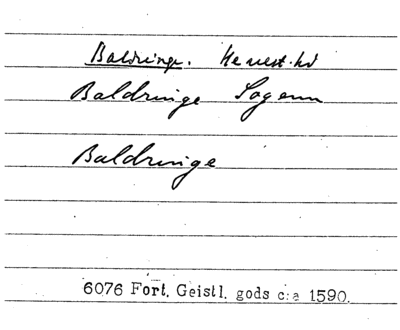 Baldringe. 
Baldringe Sogenn
Baldringe
6076 Fort. Geistl. gods c:a 1590.